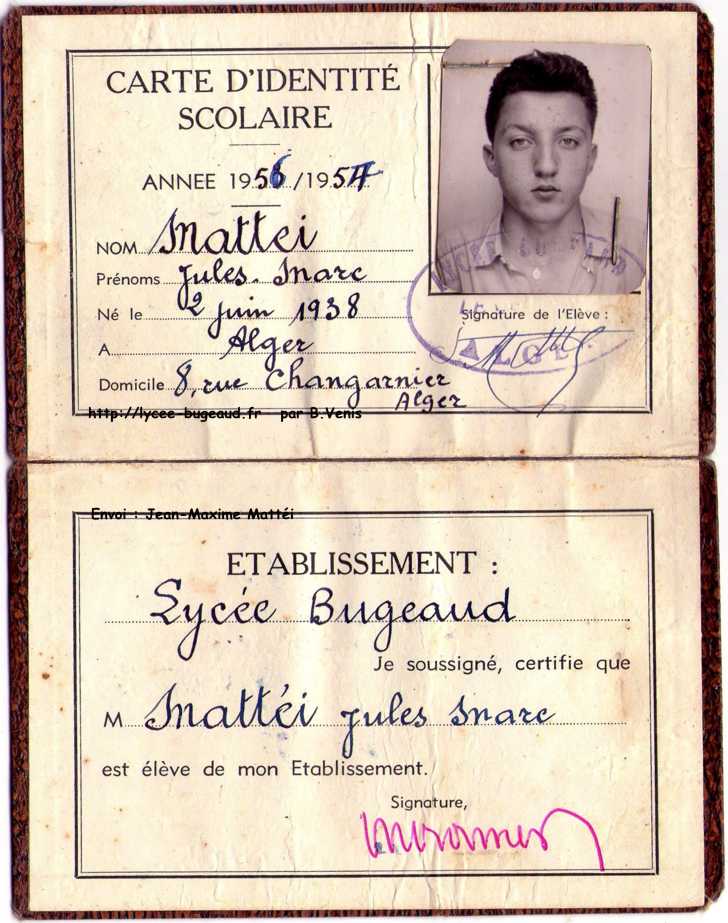 CARTE D'IDENTITÉ
SCOLAIRE
ANNEE 1956/1957
NOM Mattei
Prénoms Jules. Marc
Né le 2 juin 1938
A Alger
Domicile 8, rue Changarnier
Alger
http://lycee-bugeaud.fr par B.Venis
Signature de l'Elève :
LYCÉE BUGEAUD
ALGER
Envoi : Jean-Maxime Mattéi
ETABLISSEMENT :
Lycée Bugeaud
Je soussigné, certifie que
M Mattéi Jules Marc
est élève de mon Etablissement.
Signature,